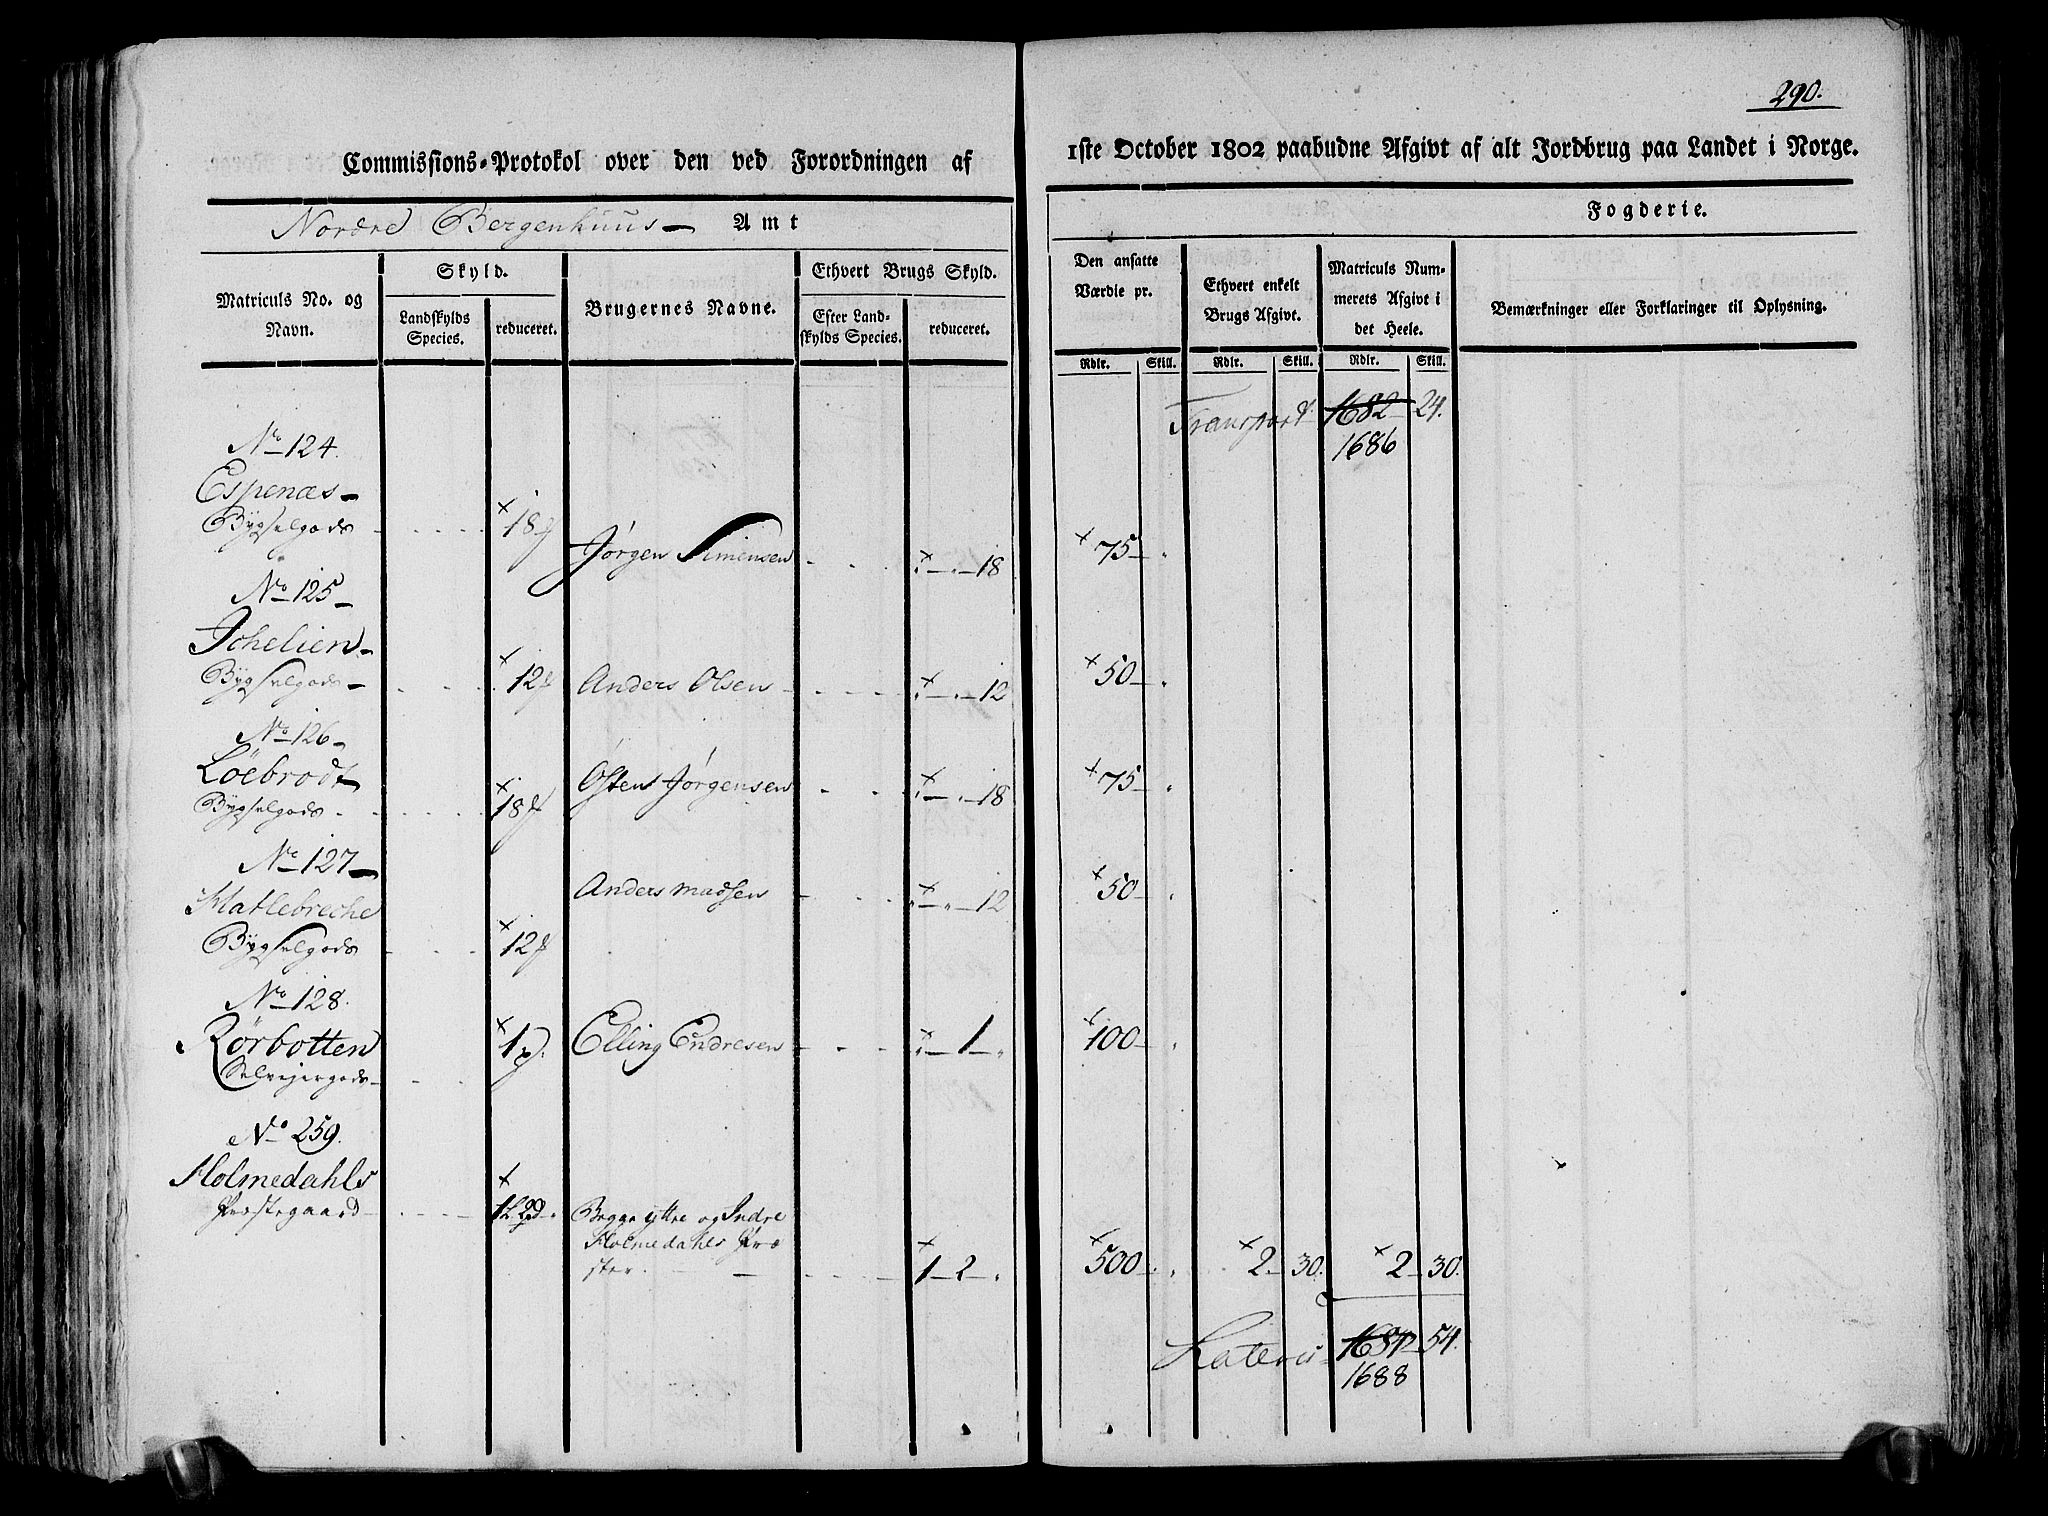 290.
Commissions-Protokol over den ved Forordningen af 1ste October 1802 paabudne Afgivt af alt Jordbrug paa Landet i Norge.
Nordre Bergenhuus Amt Fogderie.
Matriculs No. og Navn.
Skyld.
Landskylds Species.
reduceret.
Brugernes Navne.
Ethvert Brugs Skyld.
Efter Landskylds Species.
reduceret.
Den ansatte Værdie pr.
Ethvert enkelt Brugs Afgivt.
Matriculs Nummerets Afgivt i det Heele.
Bemærkninger eller Forklaringer til Oplysning.
Rdlr. Skill. Rdlr. Skill. Rdlr. Skill.
Transport 1682 24.
1686
No 124.
Espenæs
Bygselgods 18
Jørgen Simensen 18 75
No 125
Ichelien
Bygselgods 12 Anders Olsen 12 50
No 126
Löebrodt
Bygselgods 18 Østen Jørgensen 18 75
No 127
Matlebreche
Bygselgods 12 Anders Madsen 12 50
No 128.
Rörbotten
Selvejergods 1 Elling Endresen 1 100
No 259.
Holmedahls
Præstegaard
Begge yttre og Indre
Holmedahls Præ
ster. 1 2 500 2 30. 2 30.
Lateris 1684 54.
1688